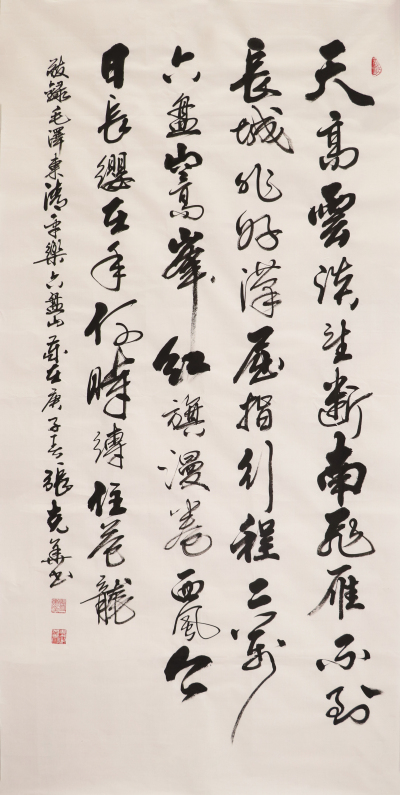 天高雲淡望斷南飛雁不到
長城非好漢屈指行程二萬
六盤山高峰紅旗漫卷西風今
日長纓在手何時縛住蒼龍
敬錄毛澤東清平樂六盤山歲在庚子春張克華書